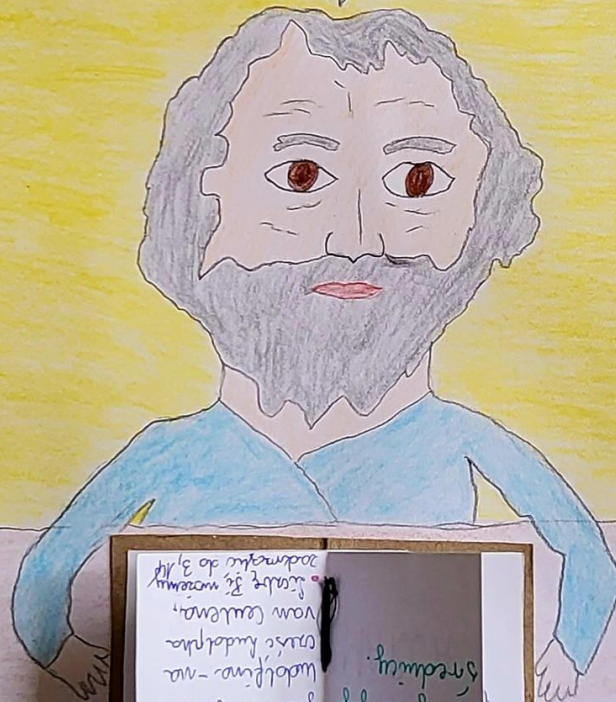 średnicy.
ludolfina - na
cześć Ludolpha
van Ceulena,
• liczbę Pi, możemy
do 3,14